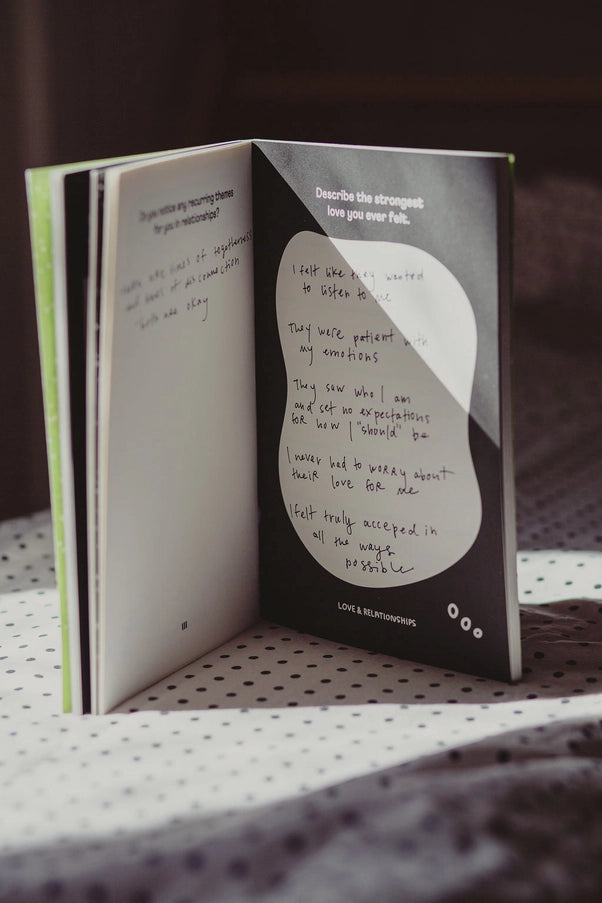 Do you notice any recurring themes
for you in relationships?
there are times of togetherness
and times of disconnection
both are okay
III
Describe the strongest
love you ever felt.
I felt like they wanted
to listen to me
They were patient with
my emotions
They saw who I am
and set no expectations
for how I "should" be
I never had to worry about
their love for me
I felt truly acceped in
all the ways
possible
LOVE & RELATIONSHIPS